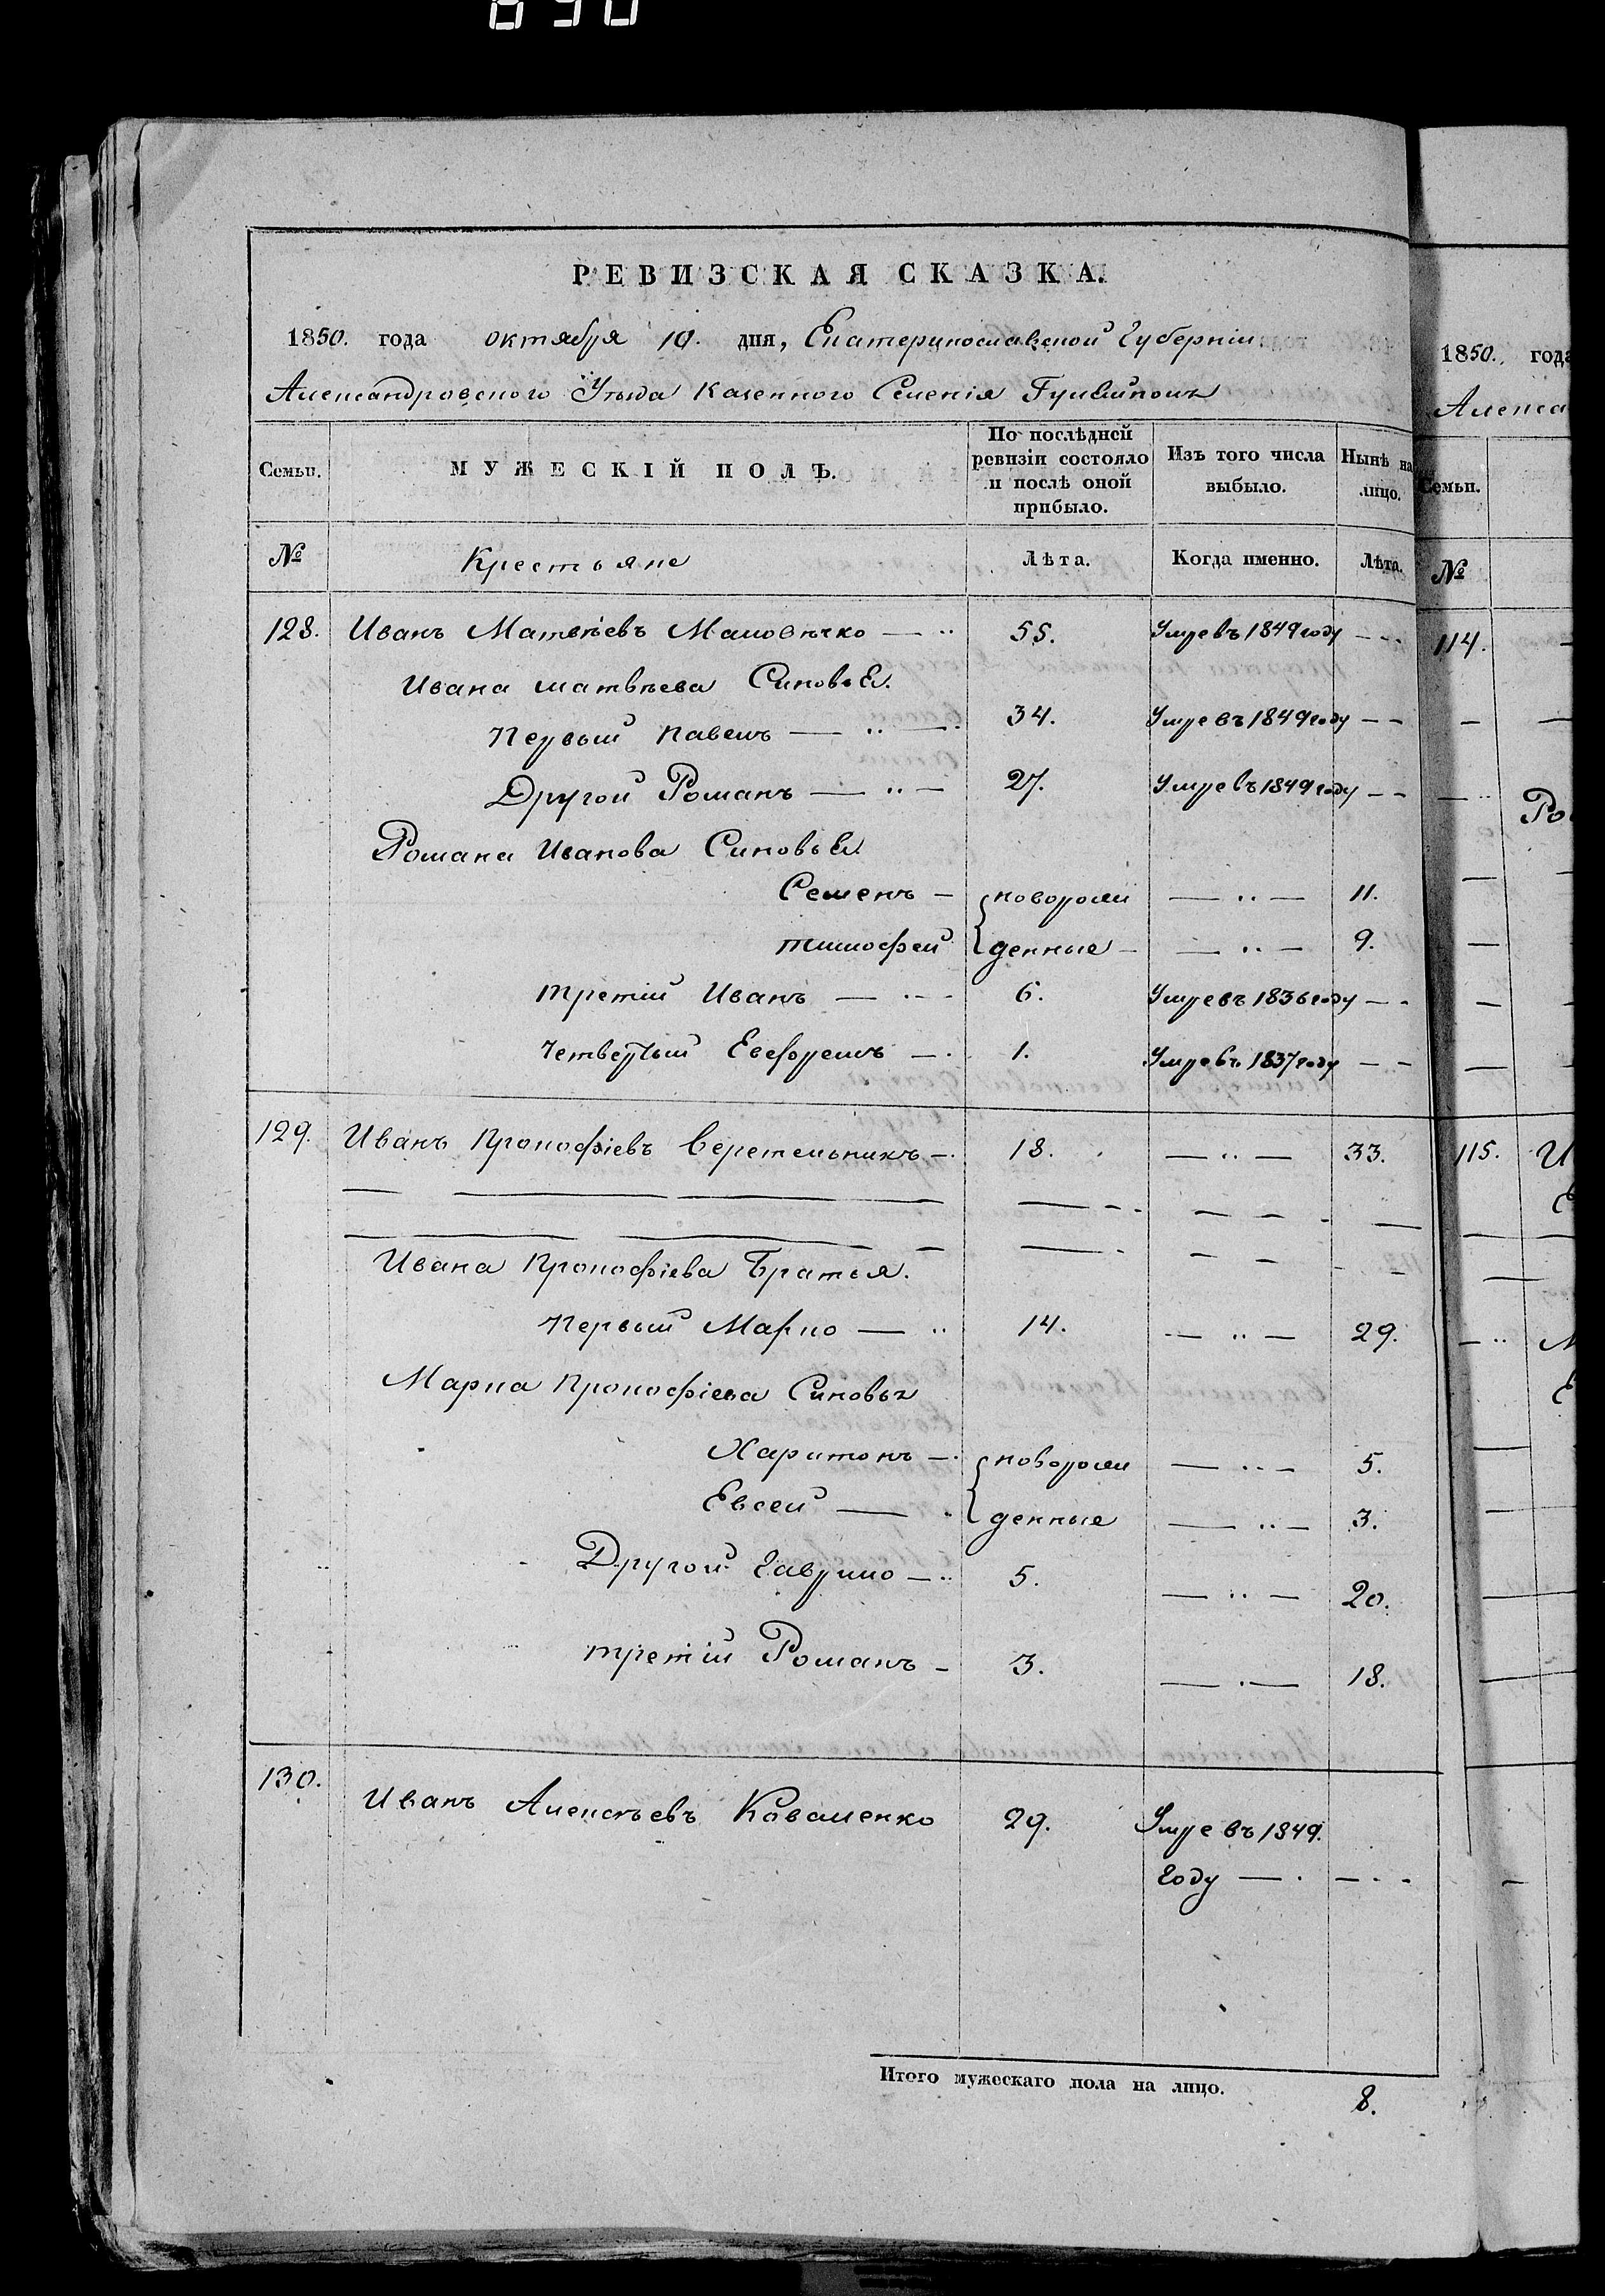 890
РЕВИЗСКАЯ СКАЗКА.
1850. года октября 10. дня, Екатеринославской Губерніи
Александровского Уѣзда казенного Селенія Гуляйполя
Семьи. МУЖЕСКІЙ ПОЛЪ. По послѣдней ревизіи состояло и послѣ оной прибыло. Изъ того числа выбыло. Нынѣ на лицо.
№ Крестьяне Лѣта. Когда именно. Лѣта.
128. Иванъ Матвѣевъ Маловѣчко — 55. Умре въ 1849 году — -
Ивана матвѣева Синовья.
Первый Павелъ — 34. Умре въ 1849 году — -
Другой Романъ — 27. Умре въ 1849 году — -
Романа Иванова Синовья
Семенъ — новорож — 11.
тимофей денные — 9.
третій Иванъ — 6. Умре въ 1836 году — -
Четвертый Евфремъ — 1. Умре въ 1837 году — -
129. Иванъ Прокофіевъ Веретельникъ — 18. — 33.
Ивана Прокофіева Братья.
Первый Марко — 14. — 29.
Марка Прокофіева Синовья
Харитонъ — новорож — 5.
Евсей — денные — 3.
Другой Гаврило — 5. — 20.
третій Романъ — 3. — 18.
130. Иванъ Алексѣевъ Коваленко 29. Умре въ 1849.
году — - -
Итого мужескаго пола на лицо. 8.
1850. года
Алекса
Семьи.
№
114.
Ро
115. И